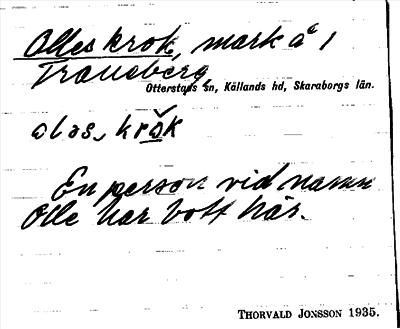 Olles krok, mark å 1
Traneberg,
Otterstads sn, Kållands hd, Skaraborgs län.
oləs, krok
En person vid namn
Olle har bott här.
THORVALD JONSSON 1935.